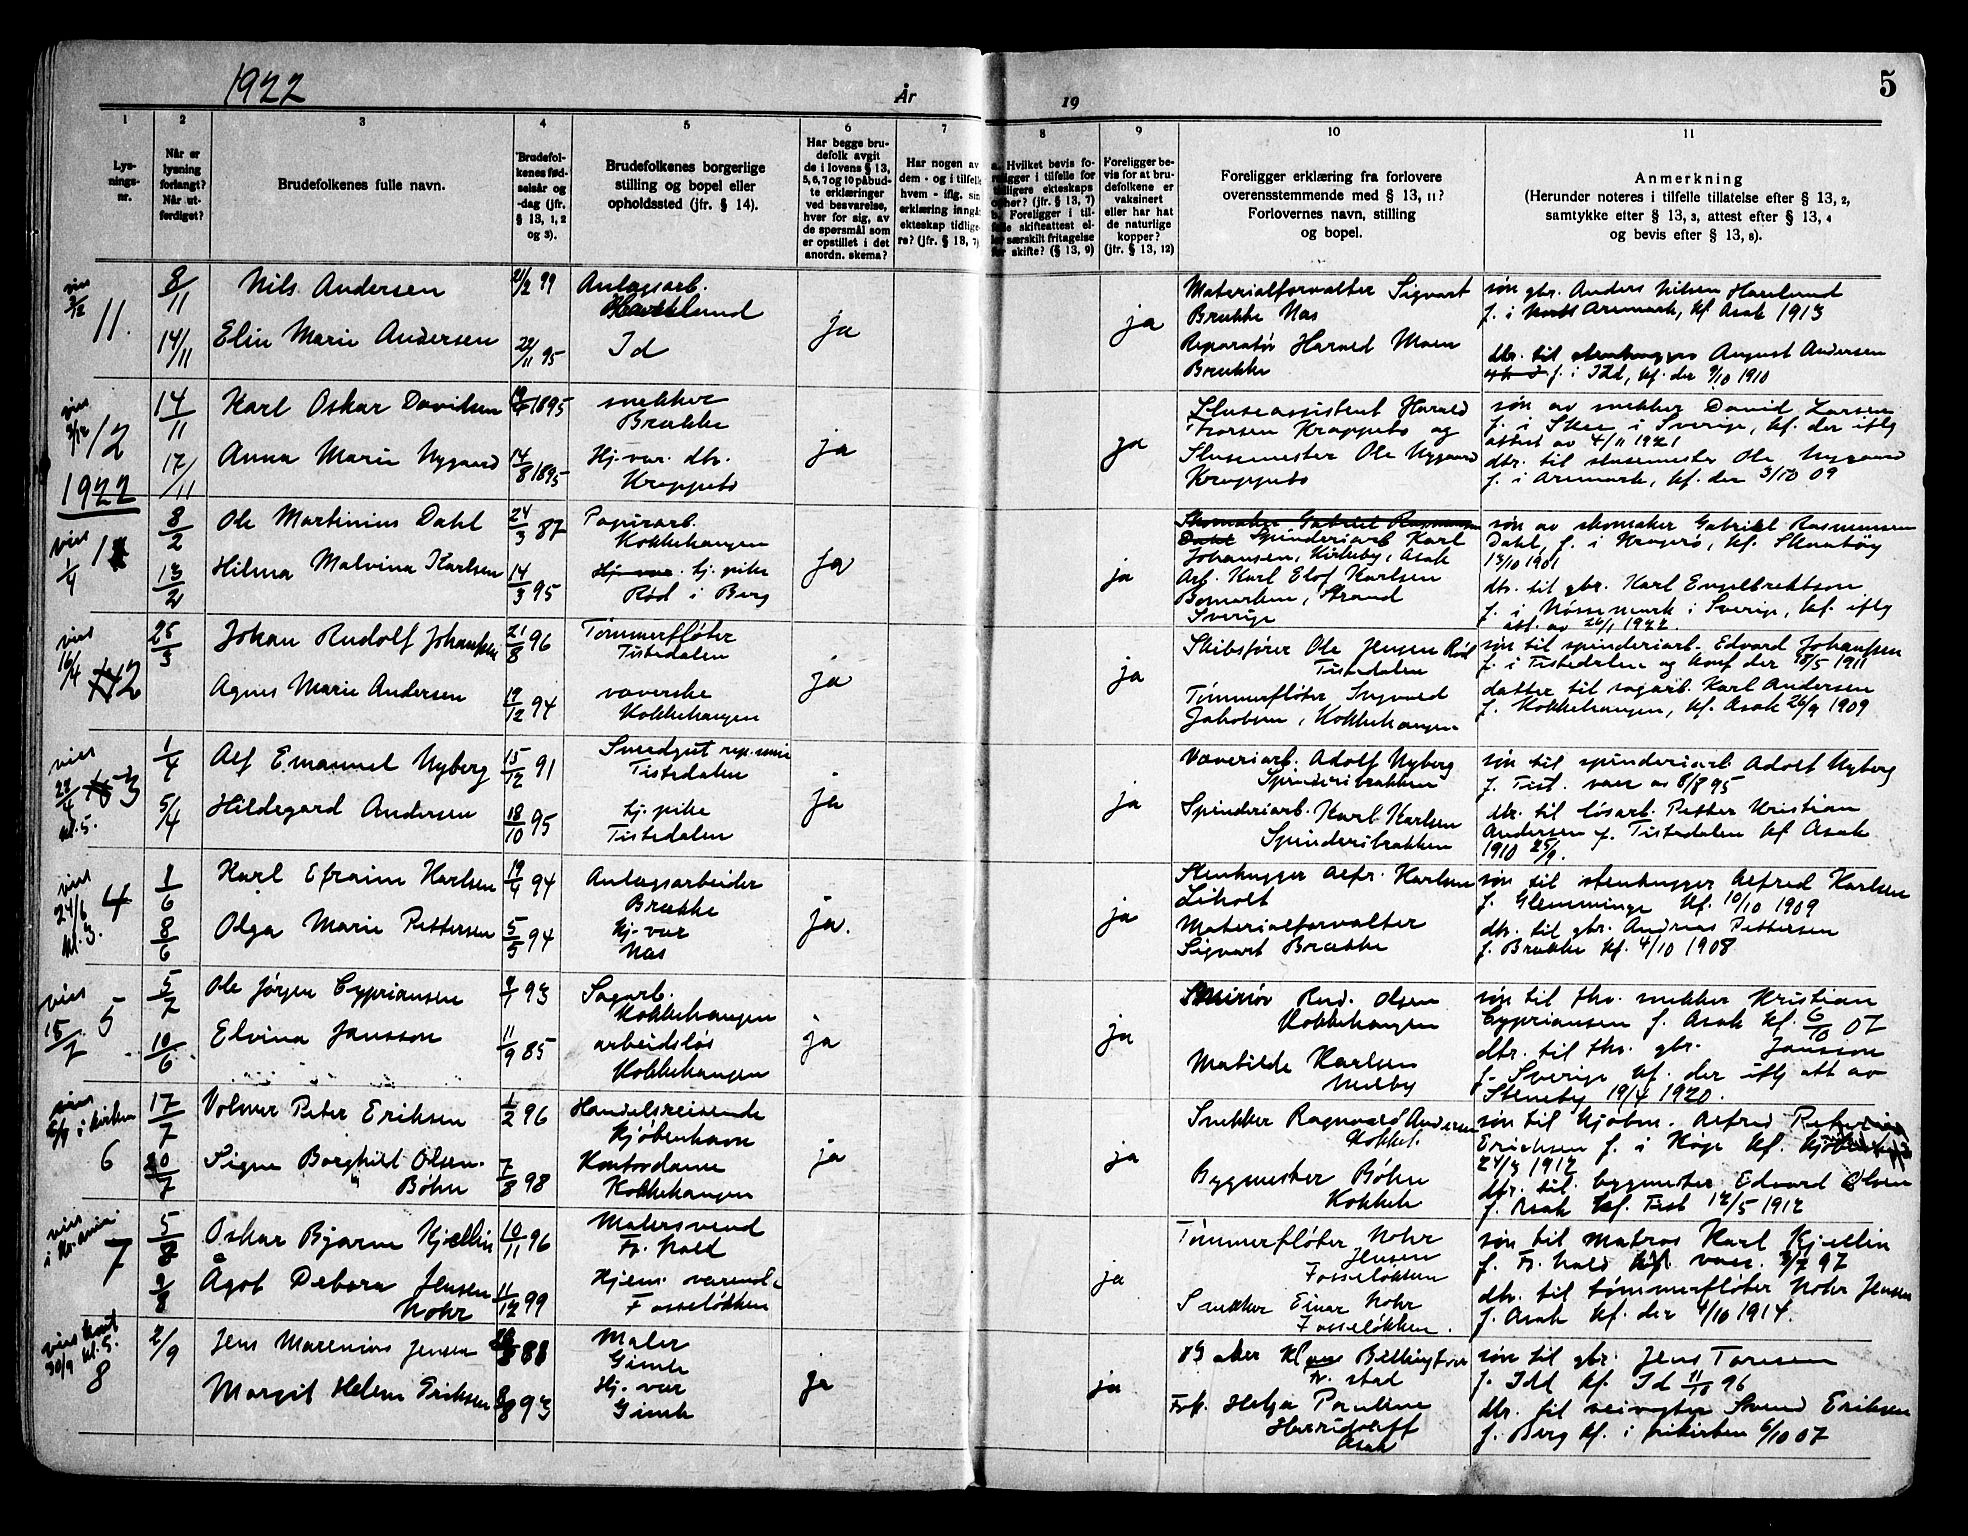 1922
År
19
5
1
2
3
4
5
6
7
8
9
10
11
Lys-
nings-
nr.
Når er
lysning
forlangt?
Når ut-
ferdiget?
Brudefolkenes fulle navn.
Brudefol-
kenes fød-
selsår og
-dag (jfr.
§ 13, 1, 2
og 3).
Brudefolkenes borgerlige
stilling og bopel eller
opholdssted (jfr. § 14).
Har begge bru-
defolk avgit
de i lovens § 13,
5, 6, 7 og 10 påbud-
te erklæringer
ved besvarelse,
hver for sig, av
de spørsmål som
er opstillet i det
anordn. skema?
Har nogen av
dem - og i tilfelle
hvem - iflg. sin
erklæring inngå
ekteskap tidlige-
re? (jfr. § 13, 7)
a. Hvilket bevis fo-
religger i tilfelle for
tidligere ekteskaps
opher? (jfr. § 13, 7)
b. Foreligger i til-
felle skifteattest el-
ler særskilt fritagelse
for skifte? (§ 13, 9)
Foreligger be-
vis for at bru-
defolkene er
vaksinert
eller har hat
de naturlige
kopper?
(jfr. § 13, 12)
Foreligger erklæring fra forlovere
overensstemmende med § 13, 11?
Forlovernes navn, stilling
og bopel.
Anmerkning
(Herunder noteres i tilfelle tillatelse efter § 13, 2,
samtykke efter § 13, 3, attest efter § 13, 4
og bevis efter § 13, 8).
11.
8/11
Nils Andersen
21/2 99
Anlagsarb.
14/11
Elin Marie Andersen
22/11 95
Id
ja
ja
Materialforvalter Sigvart
Brække Næs
Reparatør Harald Moen
Brække
søn gbr. Anders Nilsen Havelund
f. i Aremark, kf. Asak 1913
dtr. til stenhugger August Andersen
f. i Idd, kf. der 9/10 1910
viet 3/12
12
14/11
Karl Oskar Davidsen
1895
snekker
Brække
17/11
Anna Marie Nygaard
14/8 1895
Hj. vær. dtr.
Krappeto
ja
ja
Sluseassistent Harald
Thorsen Krappeto og
Slusemester Ole Nygaard
Krappeto
søn av snekker David Larsen
f. i Skee i Sverige, kf. der iflg
attest av 4/11 1921
dtr. til slusemester Ole Nygaard
f. i Aremark, kf. der 3/10 09
1922
viet 1/4
1
8/2
Ole Martinius Dahl
24/3 87
Papirarb.
Kokkehaugen
13/2
Hilma Malvina Karlsen
14/3 95
Hj. vær. tj. pike
Rød i Berg
ja
ja
Skomaker Gabriel Rasmussen
Dahl Spinderiarb Karl
Johansen, Kirkeby, Asak
Arb. Karl Elof Karlsen
Bomarken, Strand
Sverige
søn av skomaker Gabriel Rasmussen
Dahl, f. i Kragerø, kf. Skaatøy
13/10 1901
dtr. til gbr. Karl Engelbrektson
f. i Nössemark i Sverige, kf. iflg
att. av 26/1 1922
viet 16/4
2
25/3
Johan Rudolf Johanssen
21/8 96
Tømmerfløter
Tistedalen
Agnes Marie Andersen
19/12 94
væverske
Kokkehaugen
ja
ja
Skibsfører Ole Jensen Rød
Tistedalen
Tømmerfløter Ingvald
Jakobsen, Kokkehaugen
søn til spinderiarb. Edvard Johanssen
f. i Tistedalen og konf der 18/5 1911
datter til sagarb. Karl Andersen
f. Kokkehaugen, kf. Asak 26/9 1909
viet
kl. 5.
3
1/4
Alf Emanuel Nyberg
15/12 91
Tistedalen
5/4
Hildegard Andersen
18/10 95
tj. pike
Tistedalen
ja
ja
Væveriarb. Adolf Nyberg
Spinderibrakken
Spinderiarb. Karl Karlsen
Spinderibrakken
søn til spinderiarb Adolf Nyberg
f. Tist. vacc av 8/8 95
dtr. til løsarb. Petter Kristian
Andersen f. Tistedalen kf Asak
1910 25/9.
viet
24/6
kl. 3.
4
1/6
Karl Efraim Karlsen
19/4 94
Anlagsarbeider
Brække
8/6
Olga Marie Pettersen
5/5 94
Hj. vær
Næs
ja.
ja
Stenhugger Alfr. Karlsen
Liholt
Materialforvalter
Sigvart Brække
søn til stenhugger Alfred Karlsen
f. Glemminge kf. 10/10 1909
dtr. til gbr. Andreas Pettersen
f. Brække kf. 4/10 1908
viet
15/7
5
5/7
Ole Jørgen Cypriansen
93
Sagarb.
Kokkehaugen
10/6
Elvina Jansson
11/9 85
arbeidsløs
Kokkehaugen
ja
ja
Rud. Olsen
Kokkehaugen
Matilde Karlsen
Melby
søn til fhv. snekker Kristian
Cypriansen f. Asak kf. 6/10 07
dtr. til fhv. gbr. Jansson
f. Sverige kf. der iflg att av
Steneby 19/4 1920.
viet
i kirken
6
17/7
Volmer Peter Eriksen
1/2 96
Handelsreisende
Kjøbenhavn
20/7
Signe Borghild Olsen
Bøhn
7/3 98
Kontordame
Kokkehaugen
ja
ja
Snekker Ragnvald Andersen
Kokkeh.
Bygmester Bøhn
Kokkeh
søn til kjøbm. Alfred
Erichsen f. i Køge kf.
24/3 1912
dtr. til bygmester Edvard Olsen
f. Asak kf. Tist 12/5 1912
viet
i Kr.ania
7
5/8
Oskar Bjarne Kjellin
10/11 96
Malersvend
Fr. hald
9/8
Ågot Debora Jensen
Nohr
11/12 99
Hjem. værend.
Fosseløkken
ja
Tømmerfløter Nohr
Jensen
Fosseløkken
Snekker Einar Nohr
Fosseløkken.
søn til matros Karl Kjellin
f. Fr. hald vacc. 9/7 97
dtr. til tømmerfløter Nohr Jensen
f. Asak kf. der 4/10 1914.
viet
30/9 kl. 5.
8
2/9
Jens Marenius Jensen
88
Maler
Gimle
Margit Helene Eriksen
8/8 93
Hj. vær
Gimle
ja
ja
Fr. stad
Frk. Helga Pauline
Asak
søn til gbr. Jens Torusen
f. Idd kf. Id 11/10 96
dtr. til veivogter Svend Eriksen
f. Berg kf. i frikirken 6/10 07